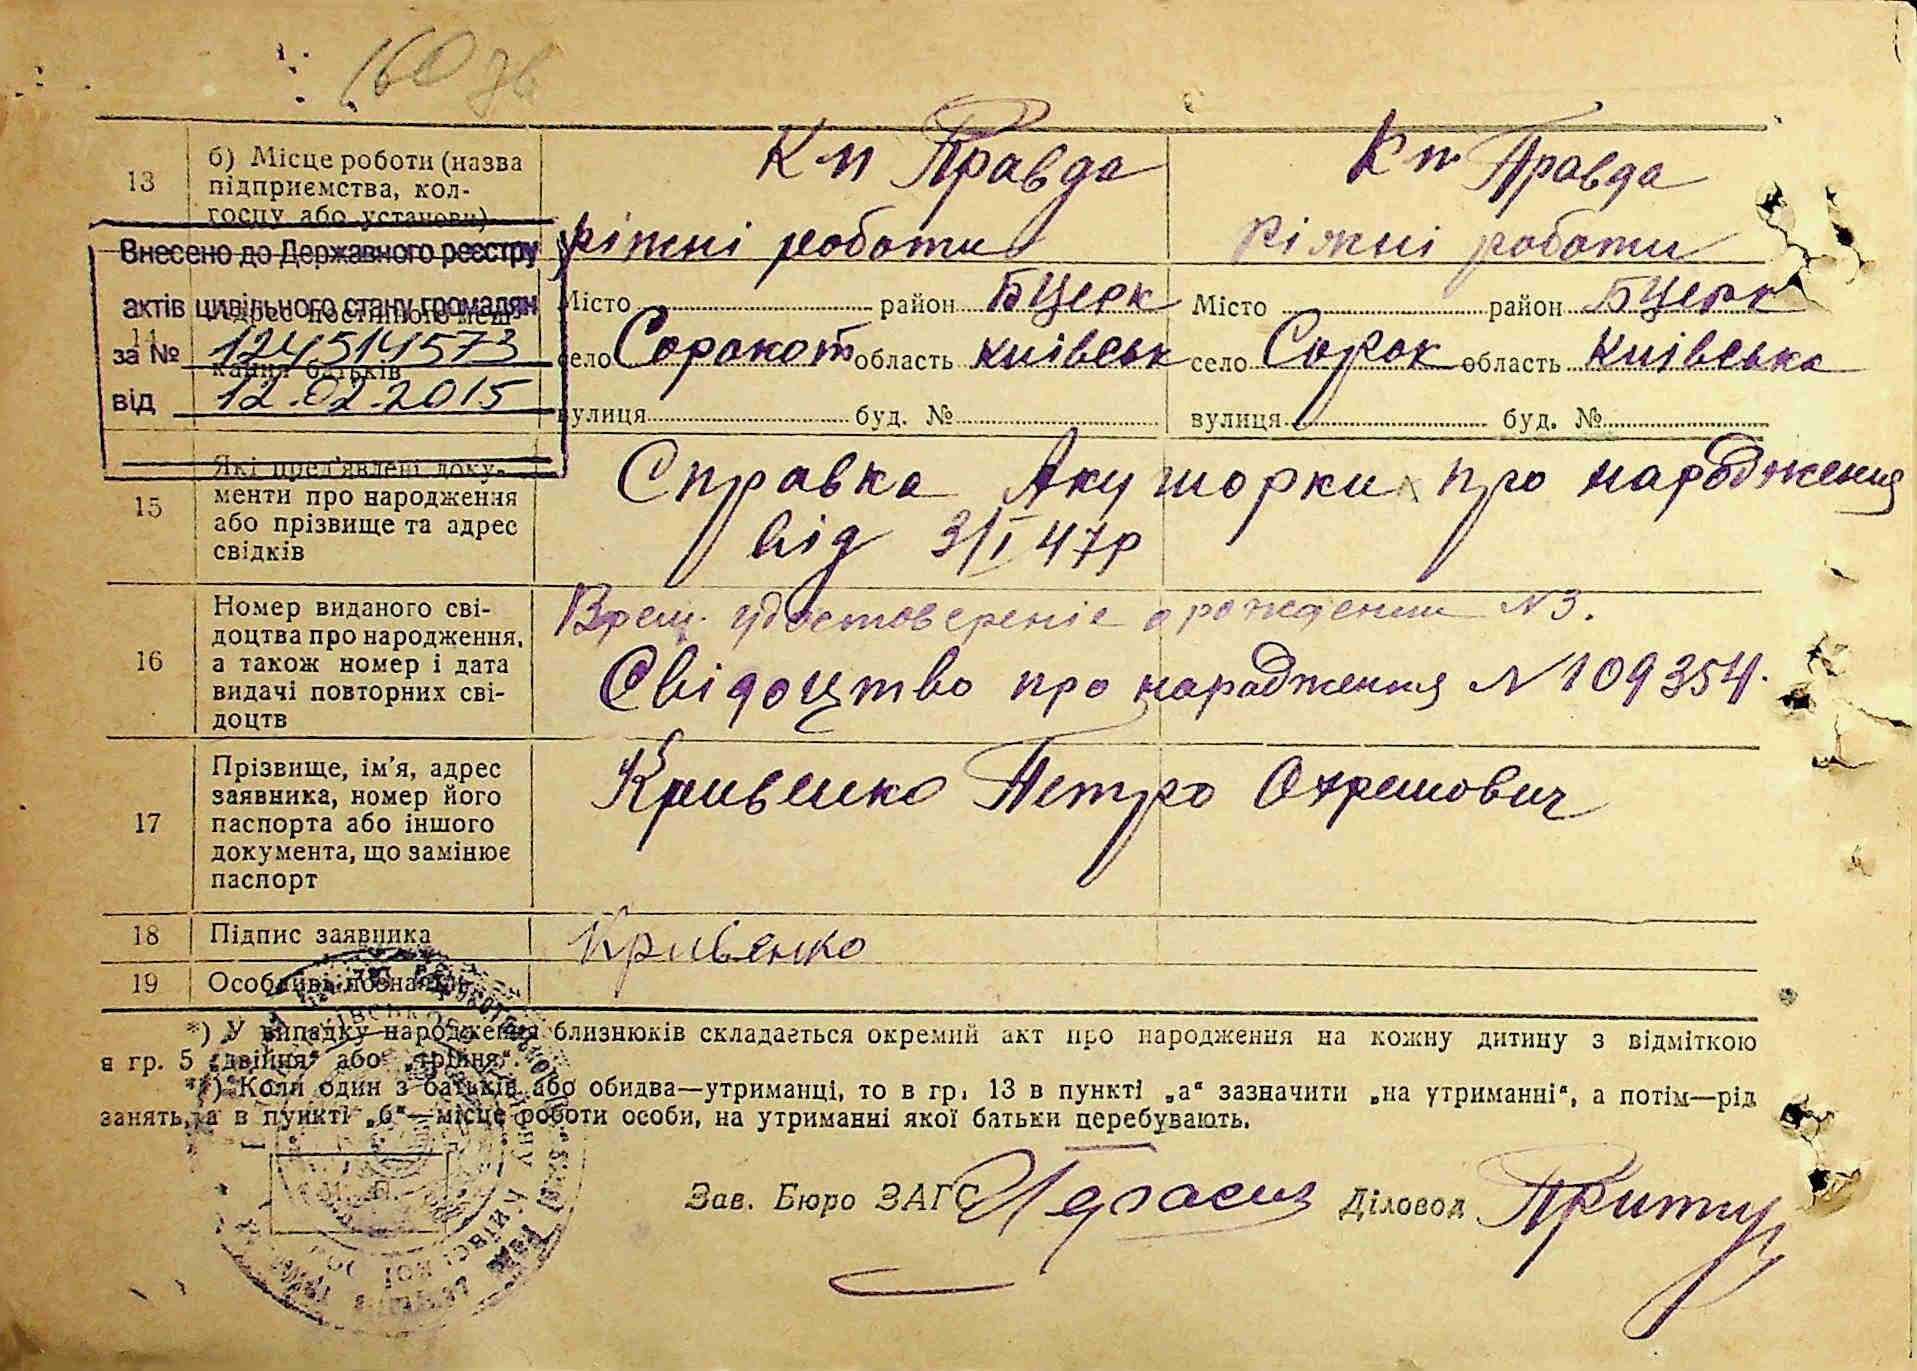 160 зв
13 б) Місце роботи (назва підприємства, колгоспу або установи) Кп Правда Кп Правда
ріжні роботи ріжні роботи
Внесено до Державного реєстру
актів цивільного стану громадян
за № 124514573
від 12.02.2015
Місто район БЦерк Місто район БЦерк
село Сорокот область київськ село Сорок область Київська
вулиця буд. № вулиця буд. №
15 Які пред'явлені документи про народження або прізвище та адрес свідків
Справка Акушорки про народження
від 3/I 47р
16 Номер виданого свідоцтва про народження, а також номер і дата видачі повторних свідоцтв
Врем. удостовереніе о рождении №3.
Свідоцтво про народження №109354.
17 Прізвище, ім'я, адрес заявника, номер його паспорта або іншого документа, що замінює паспорт
Кривенко Петро Охремович
18 Підпис заявника Кривенко
19 Особливі познаки
*) У випадку народження близнюків складається окремий акт про народження на кожну дитину з відміткою
в гр. 5 „двійня“ або „трійня“.
**) Коли один з батьків або обидва—утриманці, то в гр. 13 в пункті „а“ зазначити „на утриманні“, а потім—рід
занять, а в пункті „б“—місце роботи особи, на утриманні якої батьки перебувають.
Зав. Бюро ЗАГС Діловод